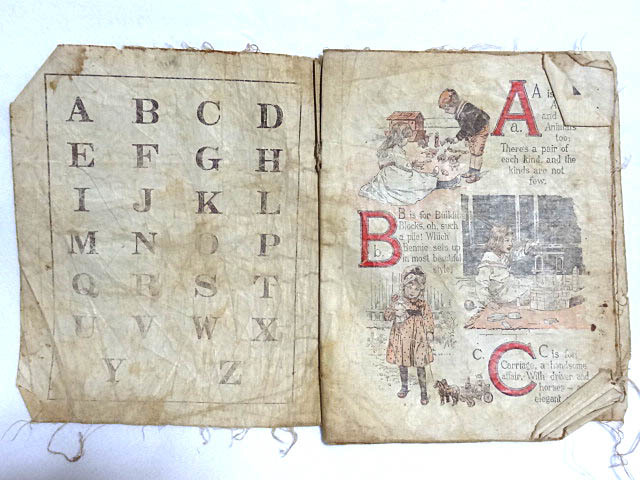 A B C D
E F G H
I J K L
M N O P
Q R S T
U V W X
Y Z
A
a.
A is
A
and Animals
too;
There's a pair of
each kind, and the
kinds are not
few.
B
b.
B is for Building
Blocks, oh, such
a pile! Which
Bennie sets up
in most beautiful
style.
C.
C
C is for
Carriage, a handsome
affair, With driver and
horses
elegant